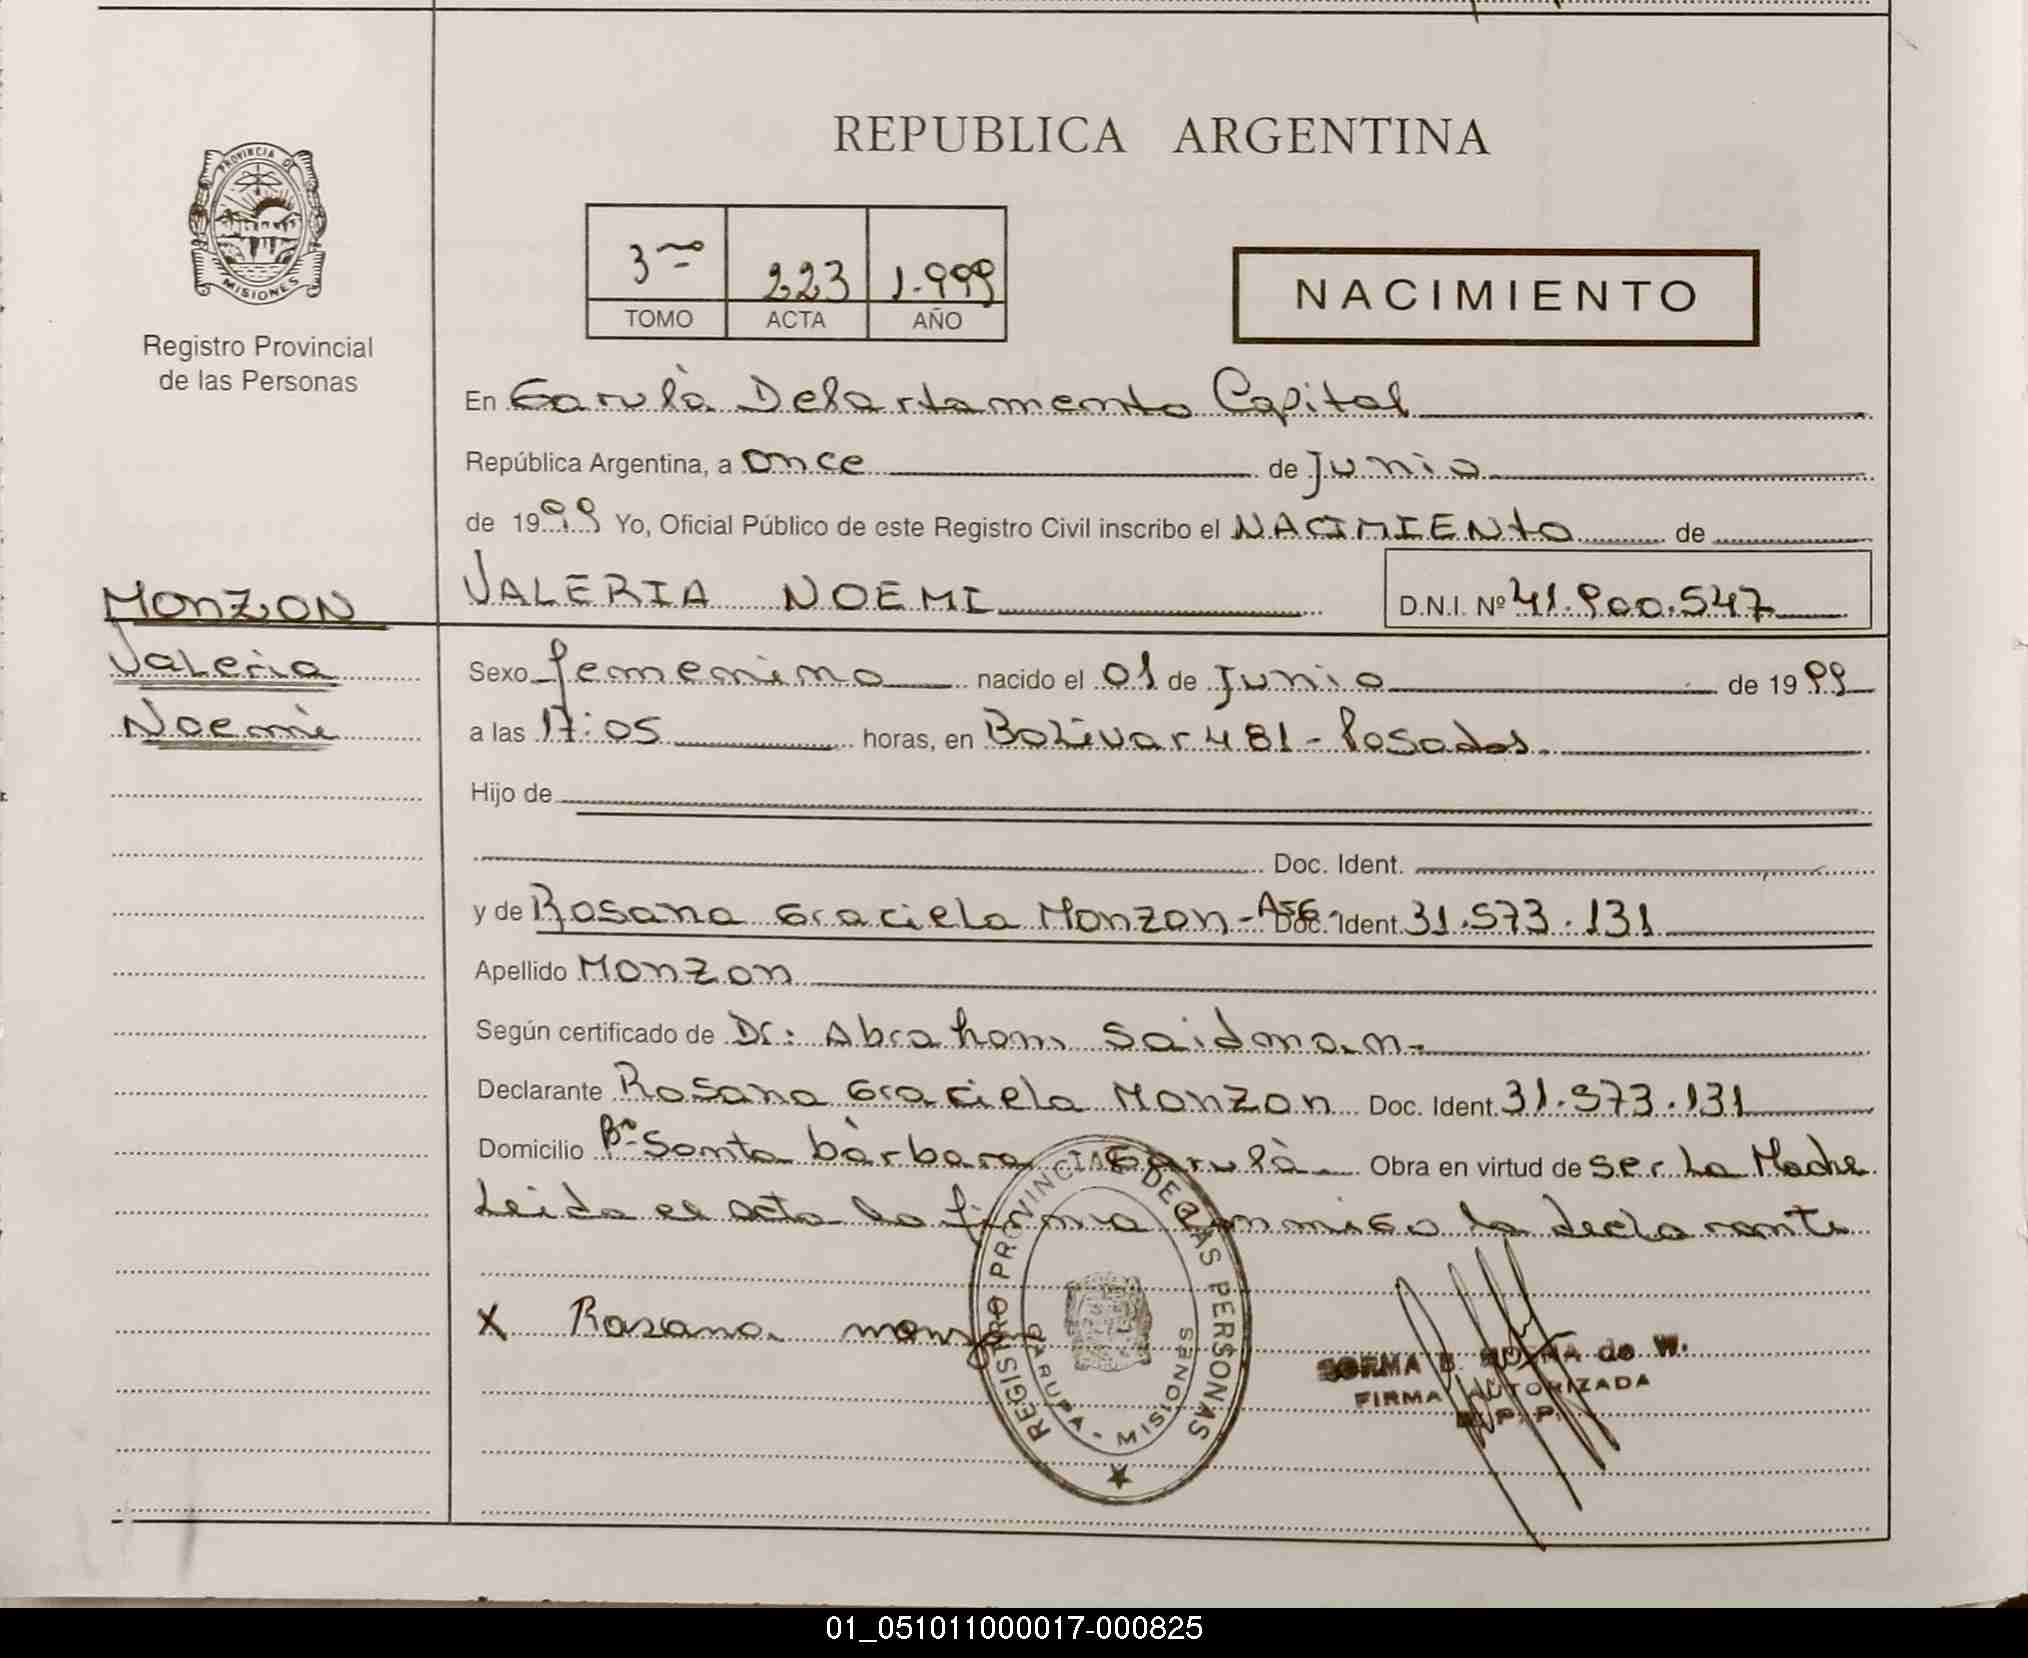 REPUBLICA ARGENTINA
PROVINCIA D
MISIONES
Registro Provincial
de las Personas
3ro 223 1.999
TOMO ACTA AÑO
NACIMIENTO
En Garupà Departamento Capital
República Argentina, a once de Junio
de 1999 Yo, Oficial Público de este Registro Civil inscribo el NACIMIENto de
MONZON
Valeria
Noemi
VALERIA NOEMI D.N.I. Nº 41.900.547
Sexo femenino nacido el 01 de Junio de 1999
a las 17:05 horas, en Bolivar 481 - Posadas
Hijo de
Doc. Ident.
y de Rosana Graciela Monzon - Arg- Doc. Ident. 31.573.131
Apellido Monzon
Según certificado de Dr: Abraham Saidman-
Declarante Rosana Graciela Monzon Doc. Ident. 31.573.131
Domicilio Bº Santa bàrbara Garupà Obra en virtud de ser La Madre
Leida el acta la firma conmigo la declarante
X Rosana monzon
REGISTRO PROVINCIAL DE LAS PERSONAS
GARUPA - MISIONES
de W.
FIRMA AUTORIZADA
R. P. P.
01_051011000017-000825